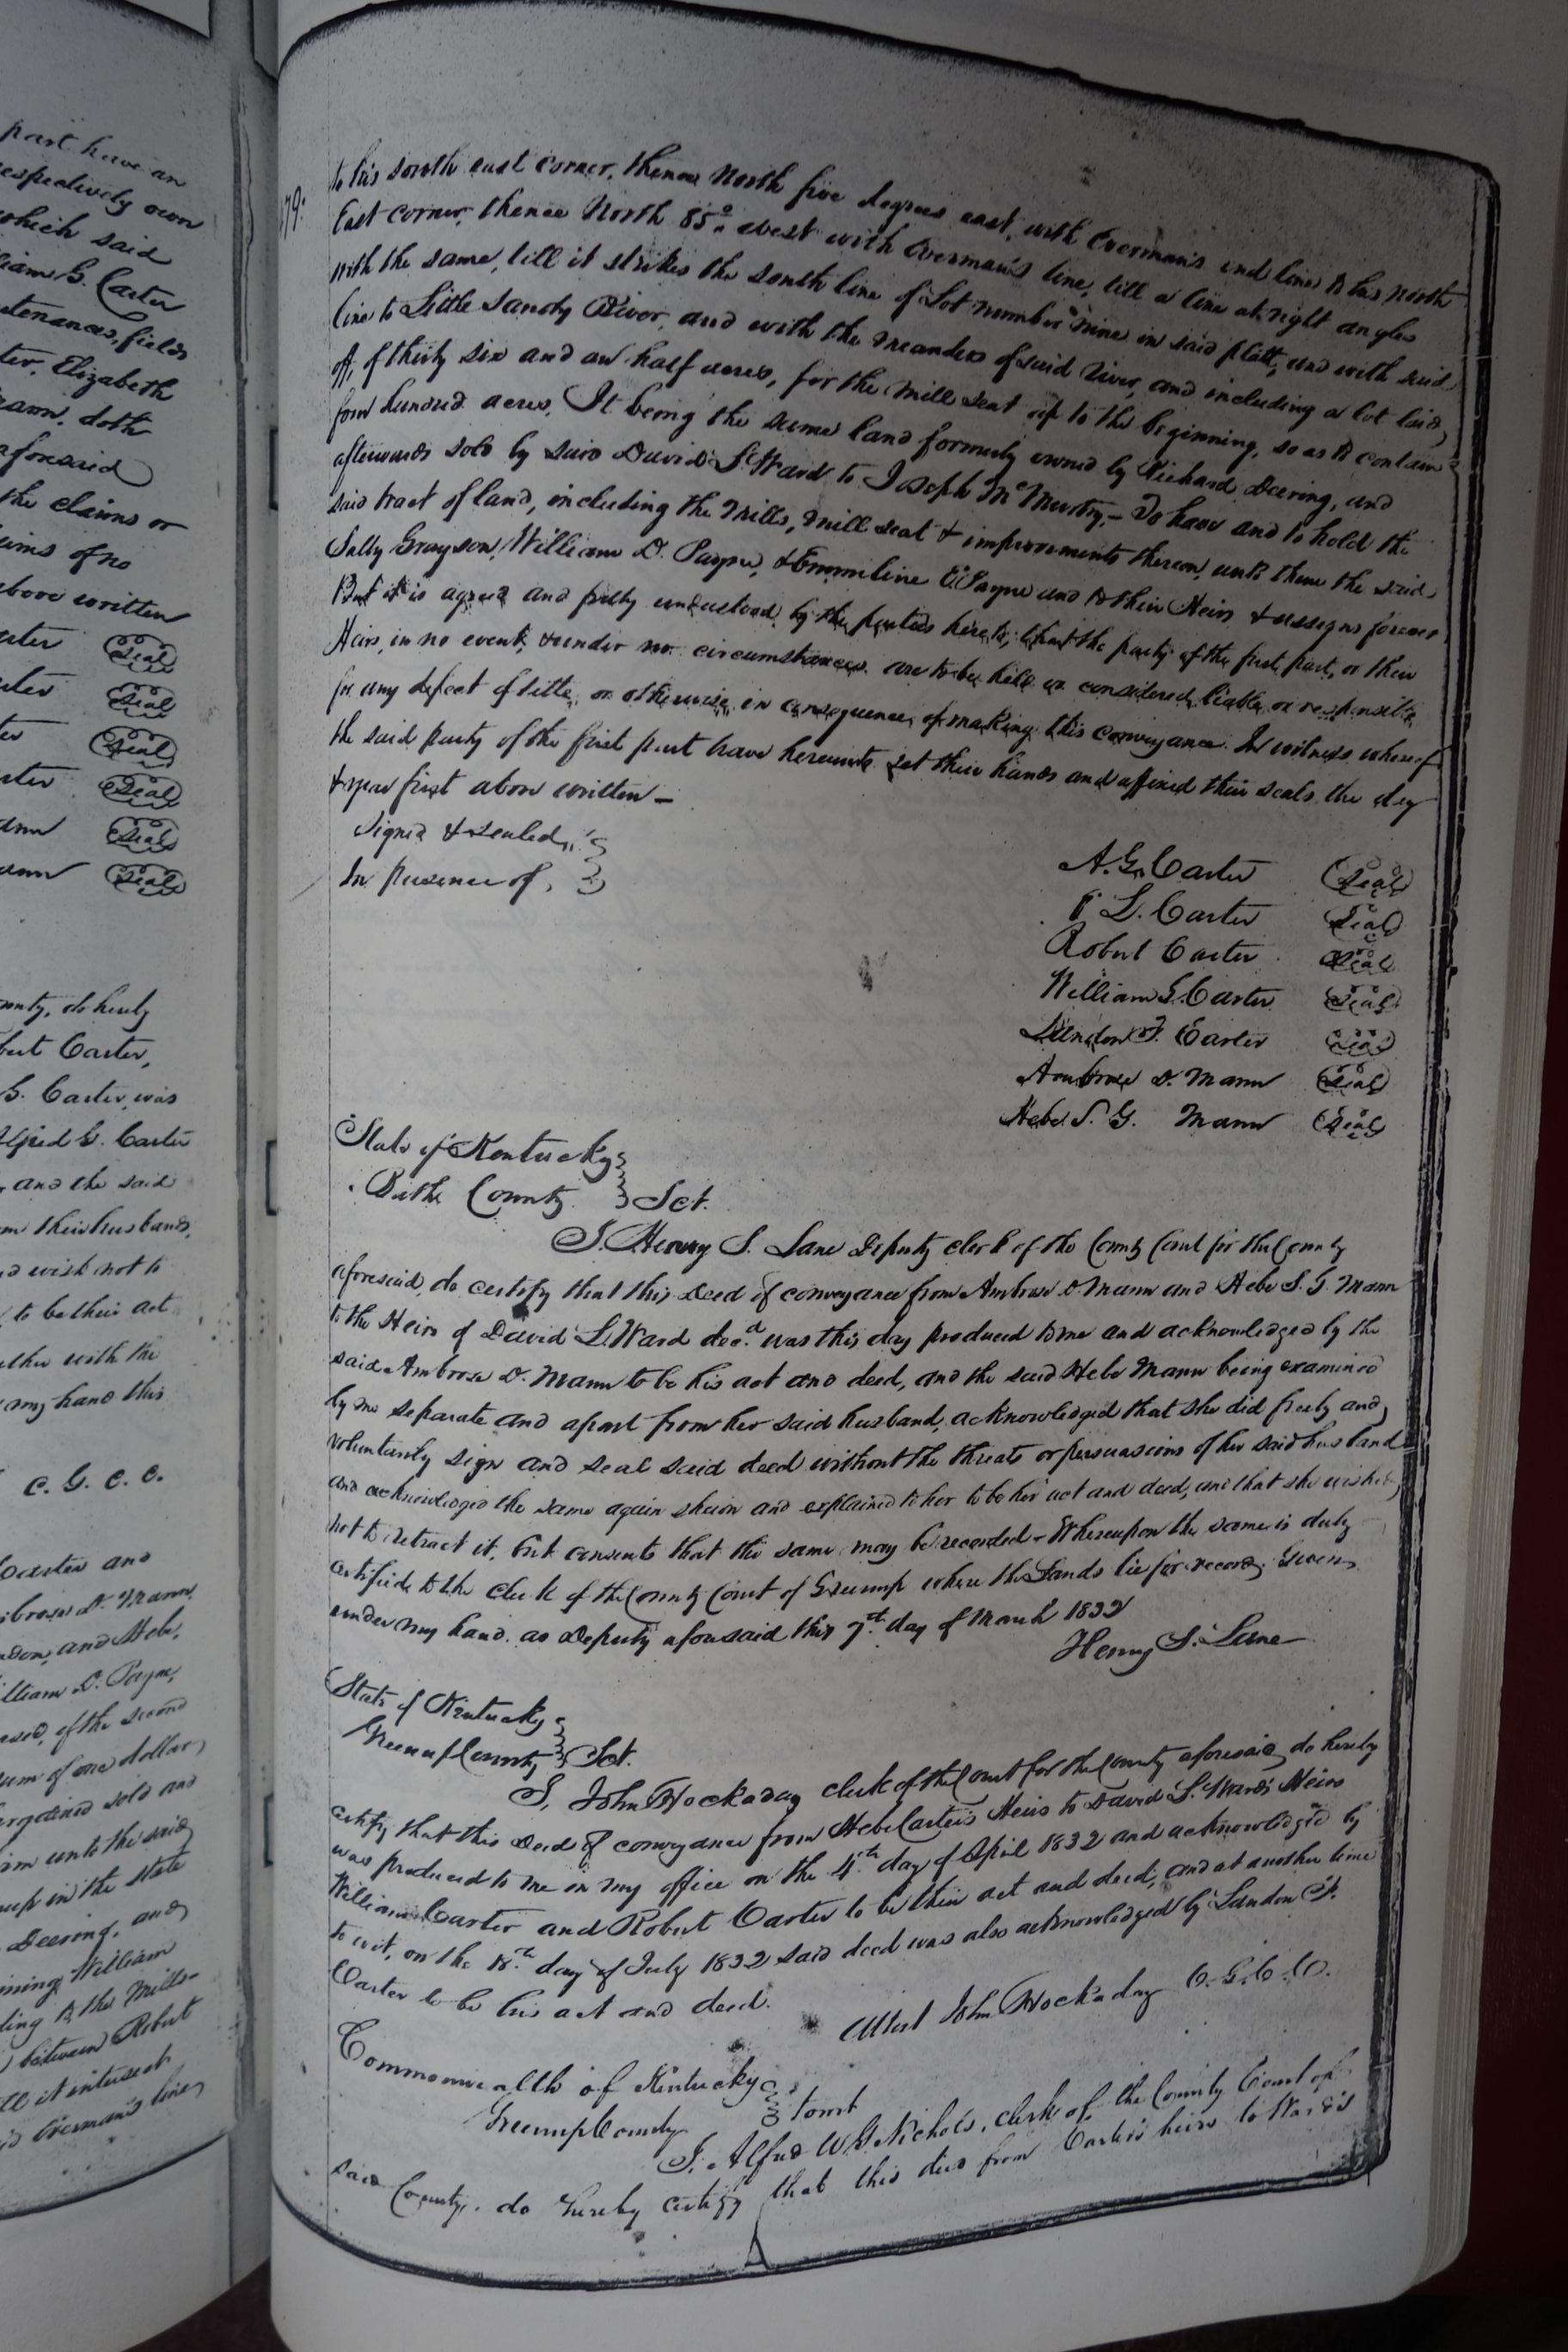 part have an
respectively own
which said
liam G. Carter
tenances, fields
ter, Elizabeth
mann, doth
aforesaid
the claims or
aims of no
above written
arter Seal
arter Seal
ter Seal
arter Seal
ann Seal
ann Seal
ounty, do hereby
bert Carter,
G. Carter, was
Alfred G. Carter
and the said
om their husbands,
d wish not to
to be their act
ether with the
my hand this
C. G. C. C.
Carter and
mbrose D. Mann,
and Hebe,
illiam D. Payne,
ased, of the second
sum of one dollar,
bargained sold and
unto the said
nup in the state
Deering, and
ining William
ding to the Mills
between Robert
ill it intersect
id Everman's line,
79.
to his south east corner, thence North five degrees east, with Everman's end line to his North
East corner, thence North 85° west with Everman's line, till a line at right angles
with the same, till it strikes the south line of Lot number nine in said platt, and with said
line to Little Sandy River, and with the meanders of said river, and including a lot laid
off, of thirty six and an half acres, for the mill seat up to the beginning, so as to contain
four hundred acres, It being the same land formerly owned by Richard Deering, and
afterwards sold by said David L. Ward to Joseph McMurtry,– To have and to hold the
said tract of land, including the Mills, mill seat & improvements thereon, unto them the said
Sally Grayson, William D. Payne, & Emmiline E. Payne and to their Heirs & assigns forever
But it is agreed and fully understood by the parties hereto, that the party of the first part, or their
Heirs, in no event, & under no circumstances are to be held or considered liable or responsible
for any defect of title, or otherwise in consequence of making this conveyance. In witness whereof
the said party of the first part have hereunto set their hands and affixed their seals the day
& year first above written –
Signed & sealed,
In presence of,
A. G. Carter Seal
L. Carter Seal
Robert Carter Seal
William G. Carter Seal
Landon F. Carter Seal
Ambrose D. Mann Seal
Hebe S. G. Mann Seal
State of Kentucky
Bathe County Sct.
I. Henry S. Lane Deputy clerk of the County Court for the County
aforesaid, do certify that this Deed of conveyance from Ambrose D. Mann and Hebe S. G. Mann
to the Heirs of David L. Ward decd. was this day produced to me and acknowledged by the
said Ambrose D. Mann to be his act and deed, and the said Hebe Mann being examined
by me separate and apart from her said husband, acknowledged that she did freely and
voluntarily sign and seal said deed without the threats or persuasions of her said husband
and acknowledged the same again shewn and explained to her to be her act and deed, and that she wished
not to retract it, but consents that the same may be recorded – Whereupon the same is duly
certified to the clerk of the County Court of Greenup where the Lands lie for record. Given
under my hand as Deputy aforesaid this 7th day of March 1832
Henry S. Lane
State of Kentucky
Greenup County Sct.
I, John Hockaday clerk of the Court for the County aforesaid, do hereby
certify that this Deed of conveyance from Hebe Carter's Heirs to David L. Ward's Heirs
was produced to me in my office on the 4th day of April 1832 and acknowledged by
William Carter and Robert Carter to be their act and deed, and at another time
to wit, on the 18th day of July 1832 said deed was also acknowledged by Landon F.
Carter to be his act and deed.
Attest John Hockaday C. G. C. C.
Commonwealth of Kentucky
Greenup County towit
I, Alfred W. G. Nichols, clerk of the County Court of
said County, do hereby certify that this deed from Carter's heirs to Ward's